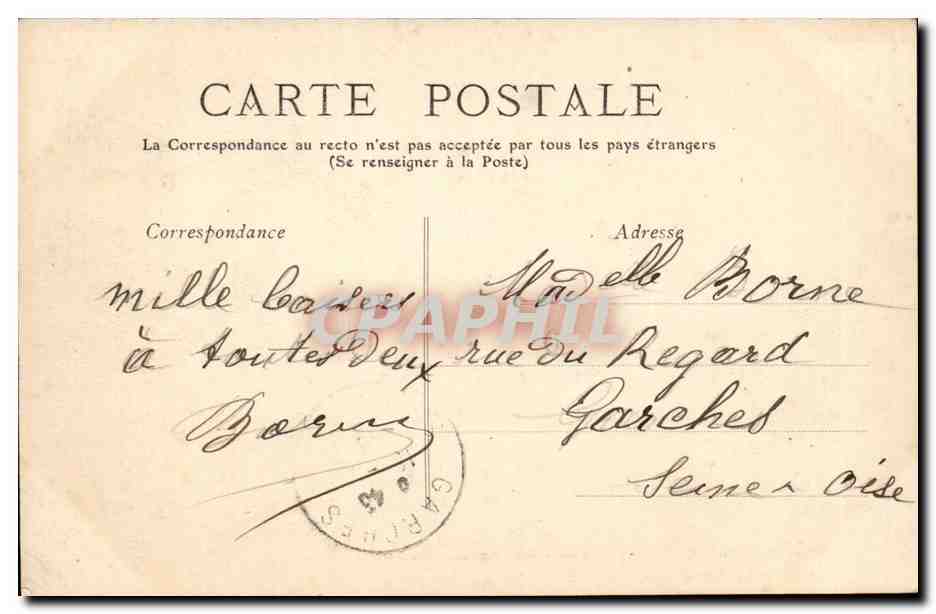 CARTE POSTALE
La Correspondance au recto n'est pas acceptée par tous les pays étrangers
(Se renseigner à la Poste)
Correspondance
mille baisers
à toutes deux
Adresse
Madelle Borne
rue du Regard
Garches
Seine & Oise
CPAPHIL
GARCHES